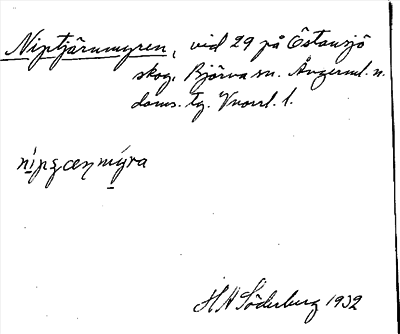 Niptjärnmyren, vid 29 på Östansjö
skog, Björna sn. Ångerml. n.
doms. tg. Vnorrl. l.
nipɕæɳmýra
H A Söderberg 1932